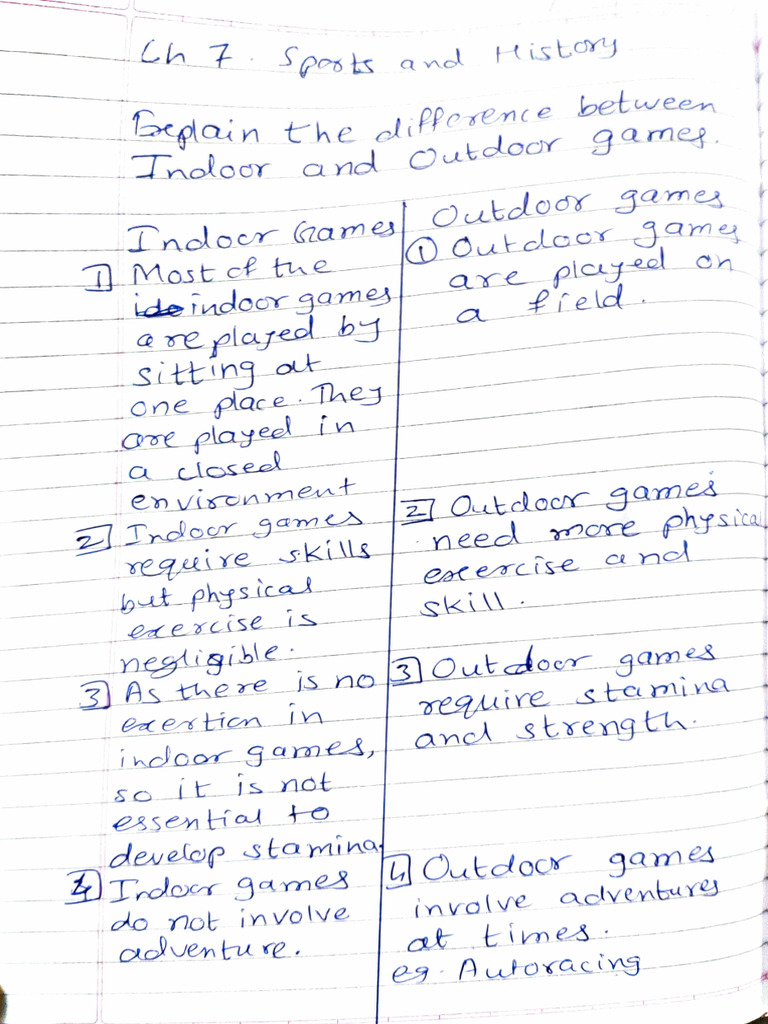 Ch 7. Sports and History
Explain the difference between
Indoor and Outdoor games.
Indoor Games
1 Most of the
indoor games
are played by
sitting at
one place. They
are played in
a closed
environment
2 Indoor games
require skills
but physical
exercise is
negligible.
3 As there is no
exertion in
indoor games,
so it is not
essential to
develop stamina
4 Indoor games
do not involve
adventure.
Outdoor games
1 Outdoor games
are played on
a field.
2 Outdoor games
need more physical
exercise and
skill.
3 Outdoor games
require stamina
and strength.
4 Outdoor games
involve adventures
at times.
eg. Autoracing